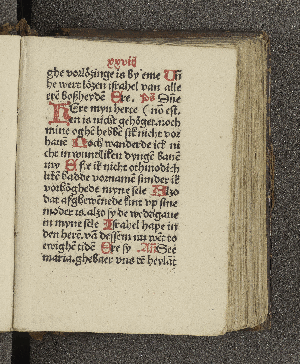 xxviii
ghe vorlözinge is by eme Uñ
he wert lözen israhel van alle
erē boßheydē Ere. ps Dñe
HEre myn herce (no est.
en is nicht gehöget. noch
mine oghē hebbē sik nicht vor
hauē Noch wanderde ick ni
cht in wunliken dyngē bauē
my Efte ik nicht othmodich
likē hadde vornamē sunder ik
vorhöghede myne sele Alzo
dat afghewēnede kint vp sine
moder is. alzo sy de wedergaue
in myne sele Israhel hape in
den herē. vā dessem nu wēt to
ewighē tidē Ere sy Añ See
maria. ghebaer vns dē heylāt